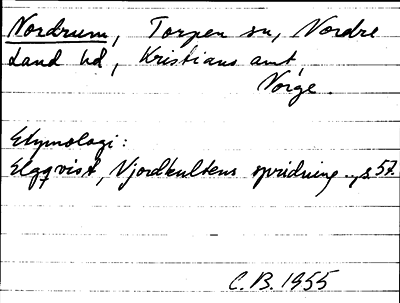 Nordrum, Torpen sn, Nordre
Land hd, Kristians amt,
Norge.
Etymologi:
Elgqvist, Njordkultens spridning.., s. 57.
C.B. 1955